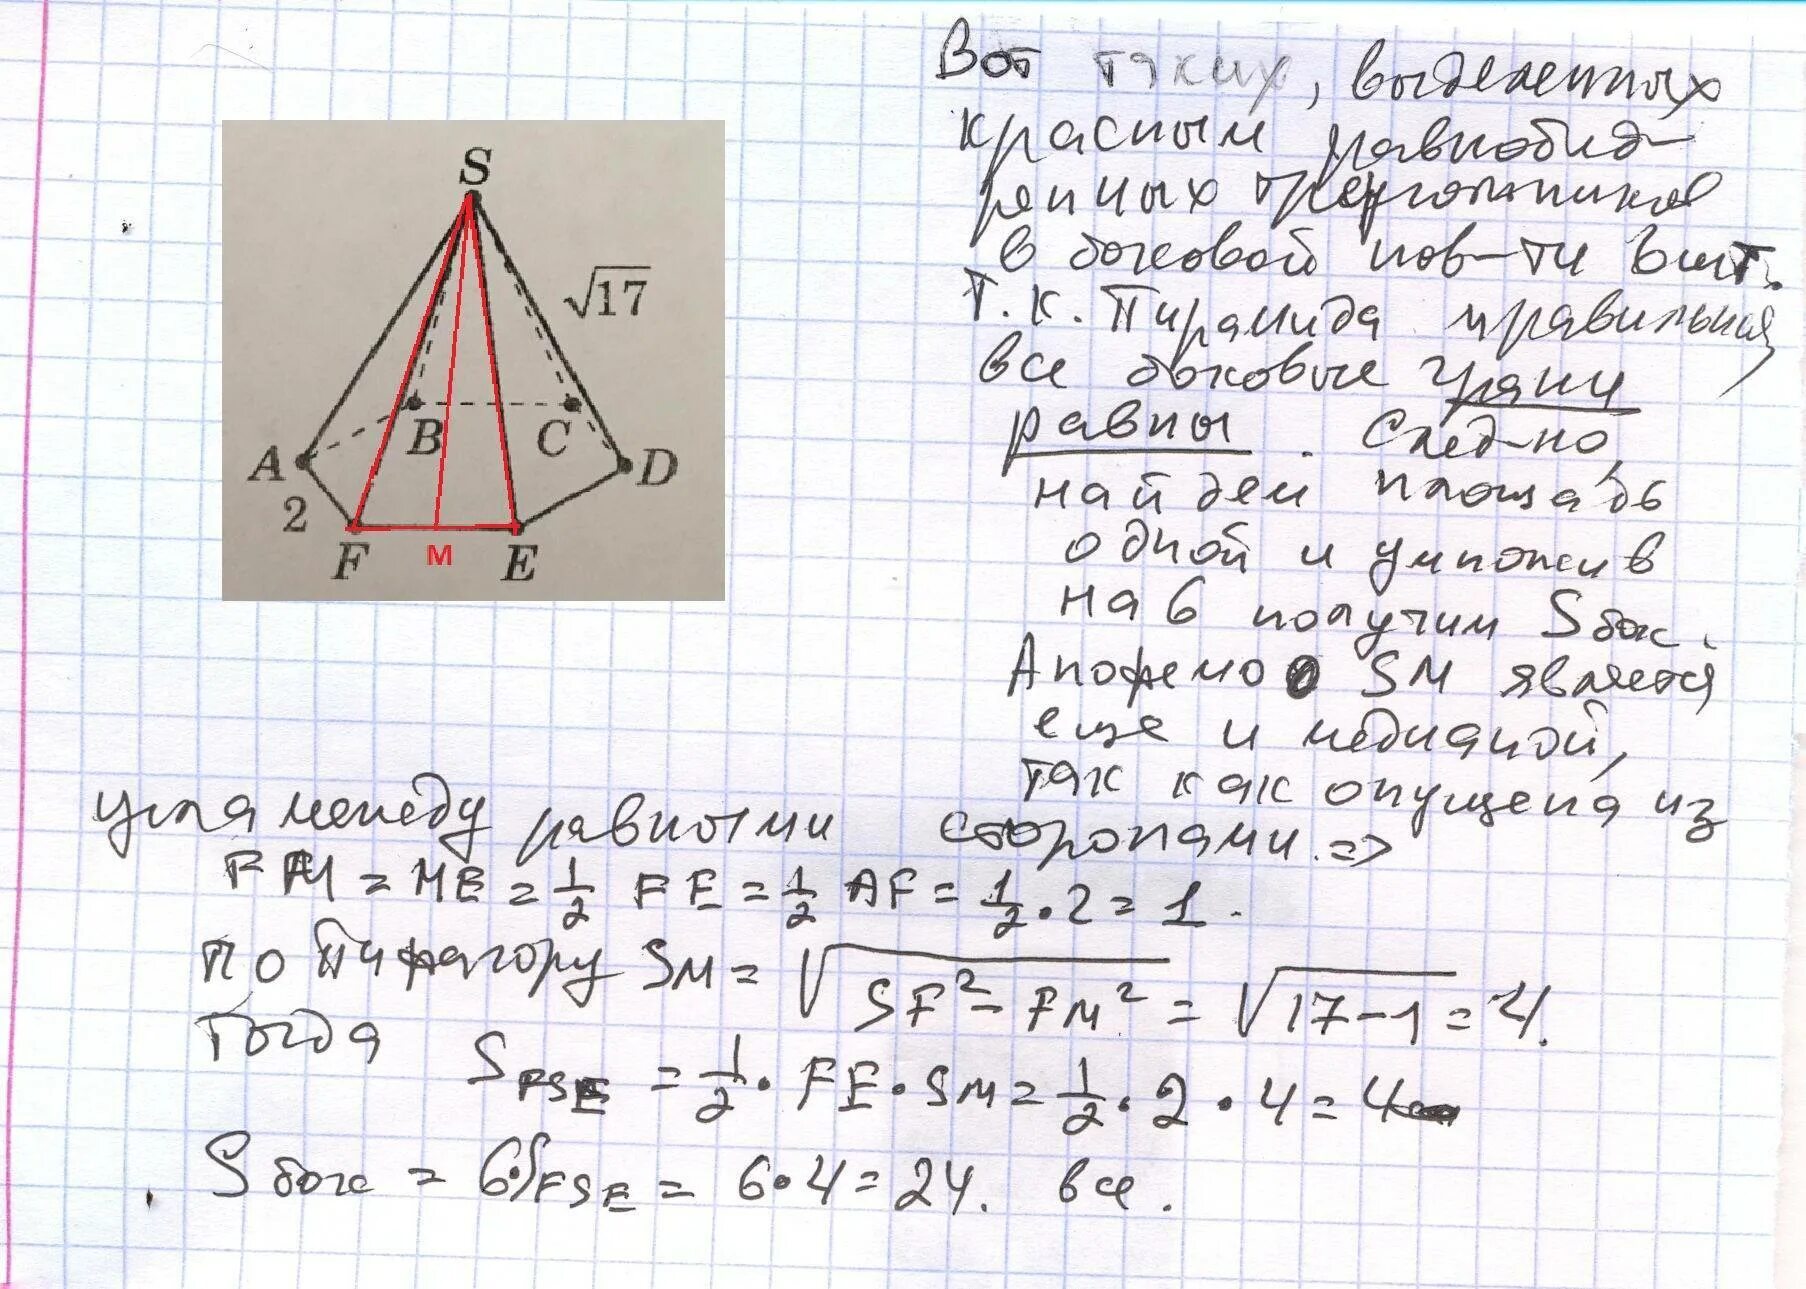 Вот таких, выделенных
красным равнобед-
ренных треугольников
в боковой пов-ти 6 шт.
Т.к. Пирамида правильная,
все боковые грани
равны. След-но,
найдем площадь
одной и умножив
на 6 получим Sбок.
Апофема SM является
еще и медианой,
так как опущена из
угла между равными сторонами. =>
FM = ME = 1/2 FE = 1/2 AF = 1/2 · 2 = 1.
по Пифагору SM = √(SF² - FM²) = √(17-1) = 4.
Тогда
S FSE = 1/2 · FE · SM = 1/2 · 2 · 4 = 4
Sбок = 6·S FSE = 6·4 = 24. все.
S
√17
B
C
A
D
2
F
M
E